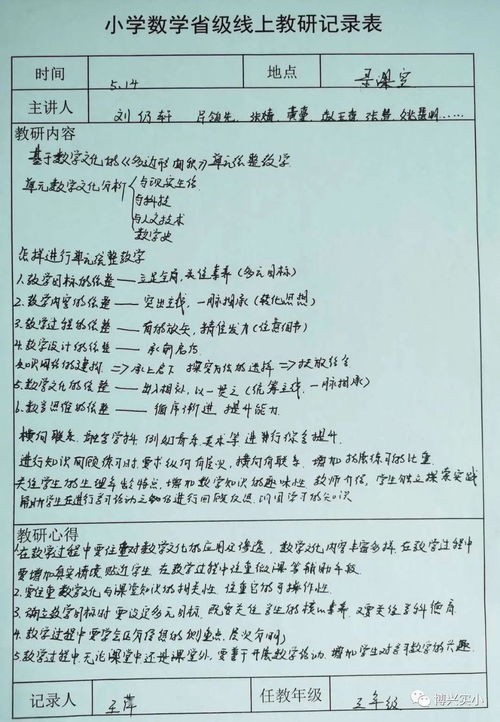 小学数学省级线上教研记录表
时间 5.14 地点 录课室
主讲人 刘
教研内容
基于数学文化的《多边形面积》单元统整教学
单元数学文化分析 与现实生活
与科技
与人文技术
数学史
怎样进行单元统整教学
1.教学目标的统整——立足全局,关注素养(多元目标)
2.教学内容的统整——突出主线,一脉相承(转化思想)
3.教学过程的统整——有的放矢,精准发力(注意细节)
4.教学设计的统整——承前启后
知识网络的建构 => 承上启下 探究方法的选择 => 扶放结合
5.数学文化的统整——一以贯之(统筹主线,一脉相承)
6.数学思维的统整——循序渐进 提升能力
横向联系,融合学科 例如音乐、美术等进行综合提升.
进行知识回顾练习时,要求纵向有层次,横向有联系,增加拓展练习的比重
关注学生的生理年龄特点,增加数学知识的趣味性 教师介绍,学生独立探索实践
帮助学生在进行学习活动之知后进行回顾反思,巩固学习的知识
教研心得
1.在教学过程中要注重对数学文化的应用及渗透,数学文化内容丰富多样,在教学过程中
要增加真实情境 贴近学生 在教学过程中注重微课等辅助手段
2.要注重数学文化与课堂知识的相关性 注重它的可操作性.
3.确立教学目标时要设定多元目标,既要关注学生的核心素养 又要关注学科德育
4.教学过程中要学会区有侧重点,层次分明
5.教学过程中,无论课堂中还是课堂外,要善于开展数学活动,增加学生对学习数学的兴趣.
记录人 王萍 任教年级 五年级
博兴实小